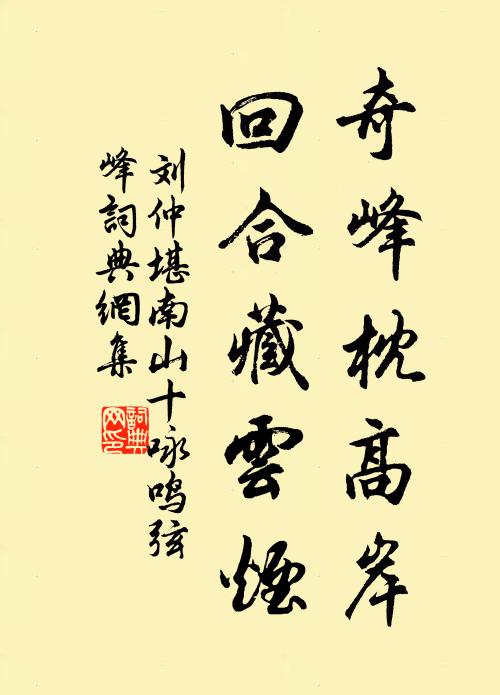 奇峰枕高岸
回合藏雲煙
刘仲堪南山十咏鸣弦
峰詞典網集
詞典
网印